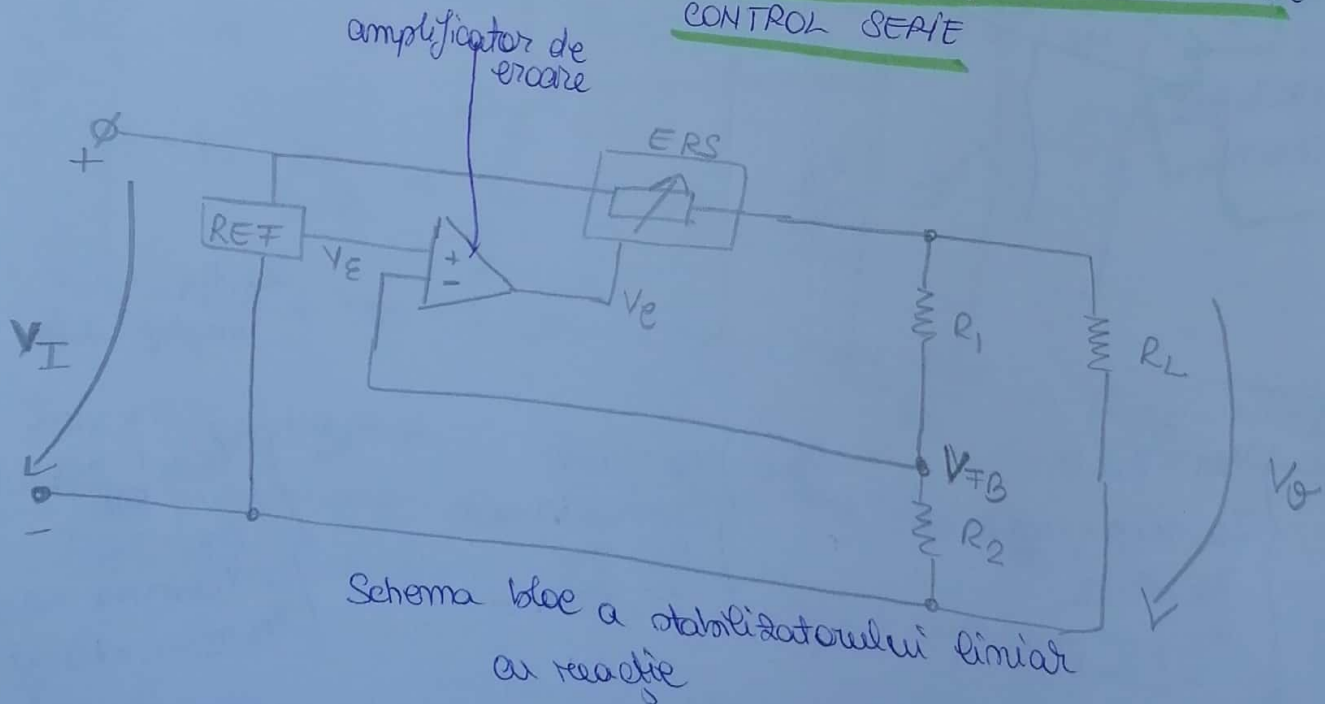 CONTROL SERIE
amplificator de
eroare
ERS
+
REF
VE
+
-
Ve
VI
R1
RL
VFB
R2
Vo
-
Schema bloc a stabilizatorului liniar
cu reacție